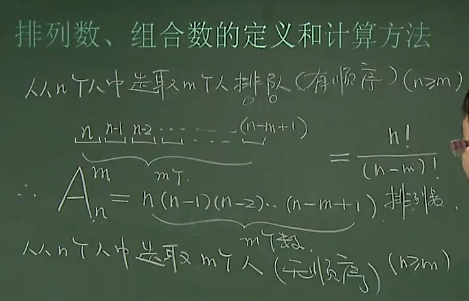 排列数、组合数的定义和计算方法
从n个人中选取m个人排队(有顺序)(n≥m)
n n-1 n-2 ⋯ ⋯ ⋯ (n-m+1)
m个
= n!/(n-m)!
∴ A_n^m = n(n-1)(n-2)⋯(n-m+1) 排列数
m个数
从n个人中选取m个人(无顺序)(n≥m)